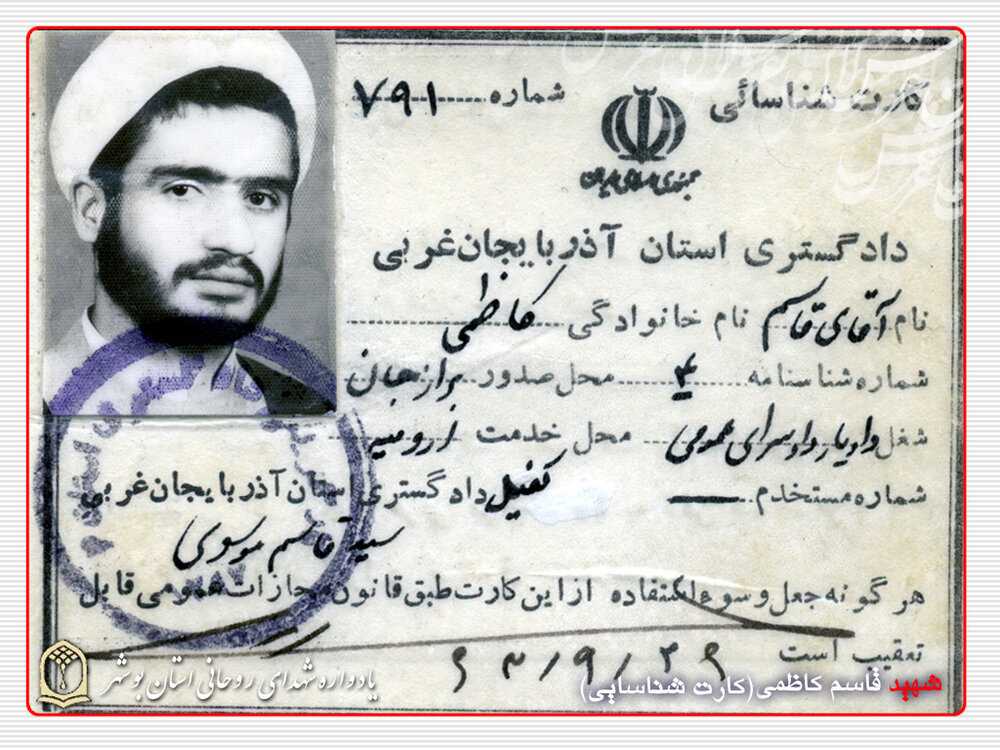 کارت شناسائی
شماره ۷۹۱
جمهوری اسلامی ایران
دادگستری استان آذربایجان‌غربی
نام آقای قاسم نام خانوادگی کاظمی
شماره شناسنامه ۴ محل صدور برازجان
شغل دادیار دادسرای عمومی محل خدمت ارومیه
شماره مستخدم
کفیل دادگستری استان آذربایجان‌غربی
سید قاسم موسوی
هرگونه جعل و سوء استفاده از این کارت طبق قانون مجازات عمومی قابل
تعقیب است
یادواره شهدای روحانی استان بوشهر
شهید قاسم کاظمی (کارت شناسایی)